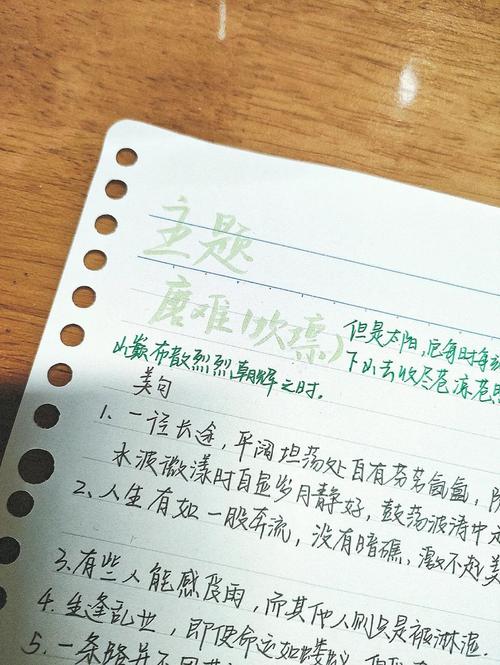 主题
磨难(坎凛)
但是太阳,它每时每刻
下山去收尽苍凉
山巅布散烈烈朝辉之时.
美句
1. 一径长途,平阔坦荡处自有芬芳氤氲,
水波微漾时自显岁月静好,鼓荡波涛中
2.人生有如一股奔流,没有暗礁,激不起美
3.有些人能感受雨,而其他人则只是被淋湿.
4.生逢乱世,即使命运如蝼蚁,但
5.一条路并不因